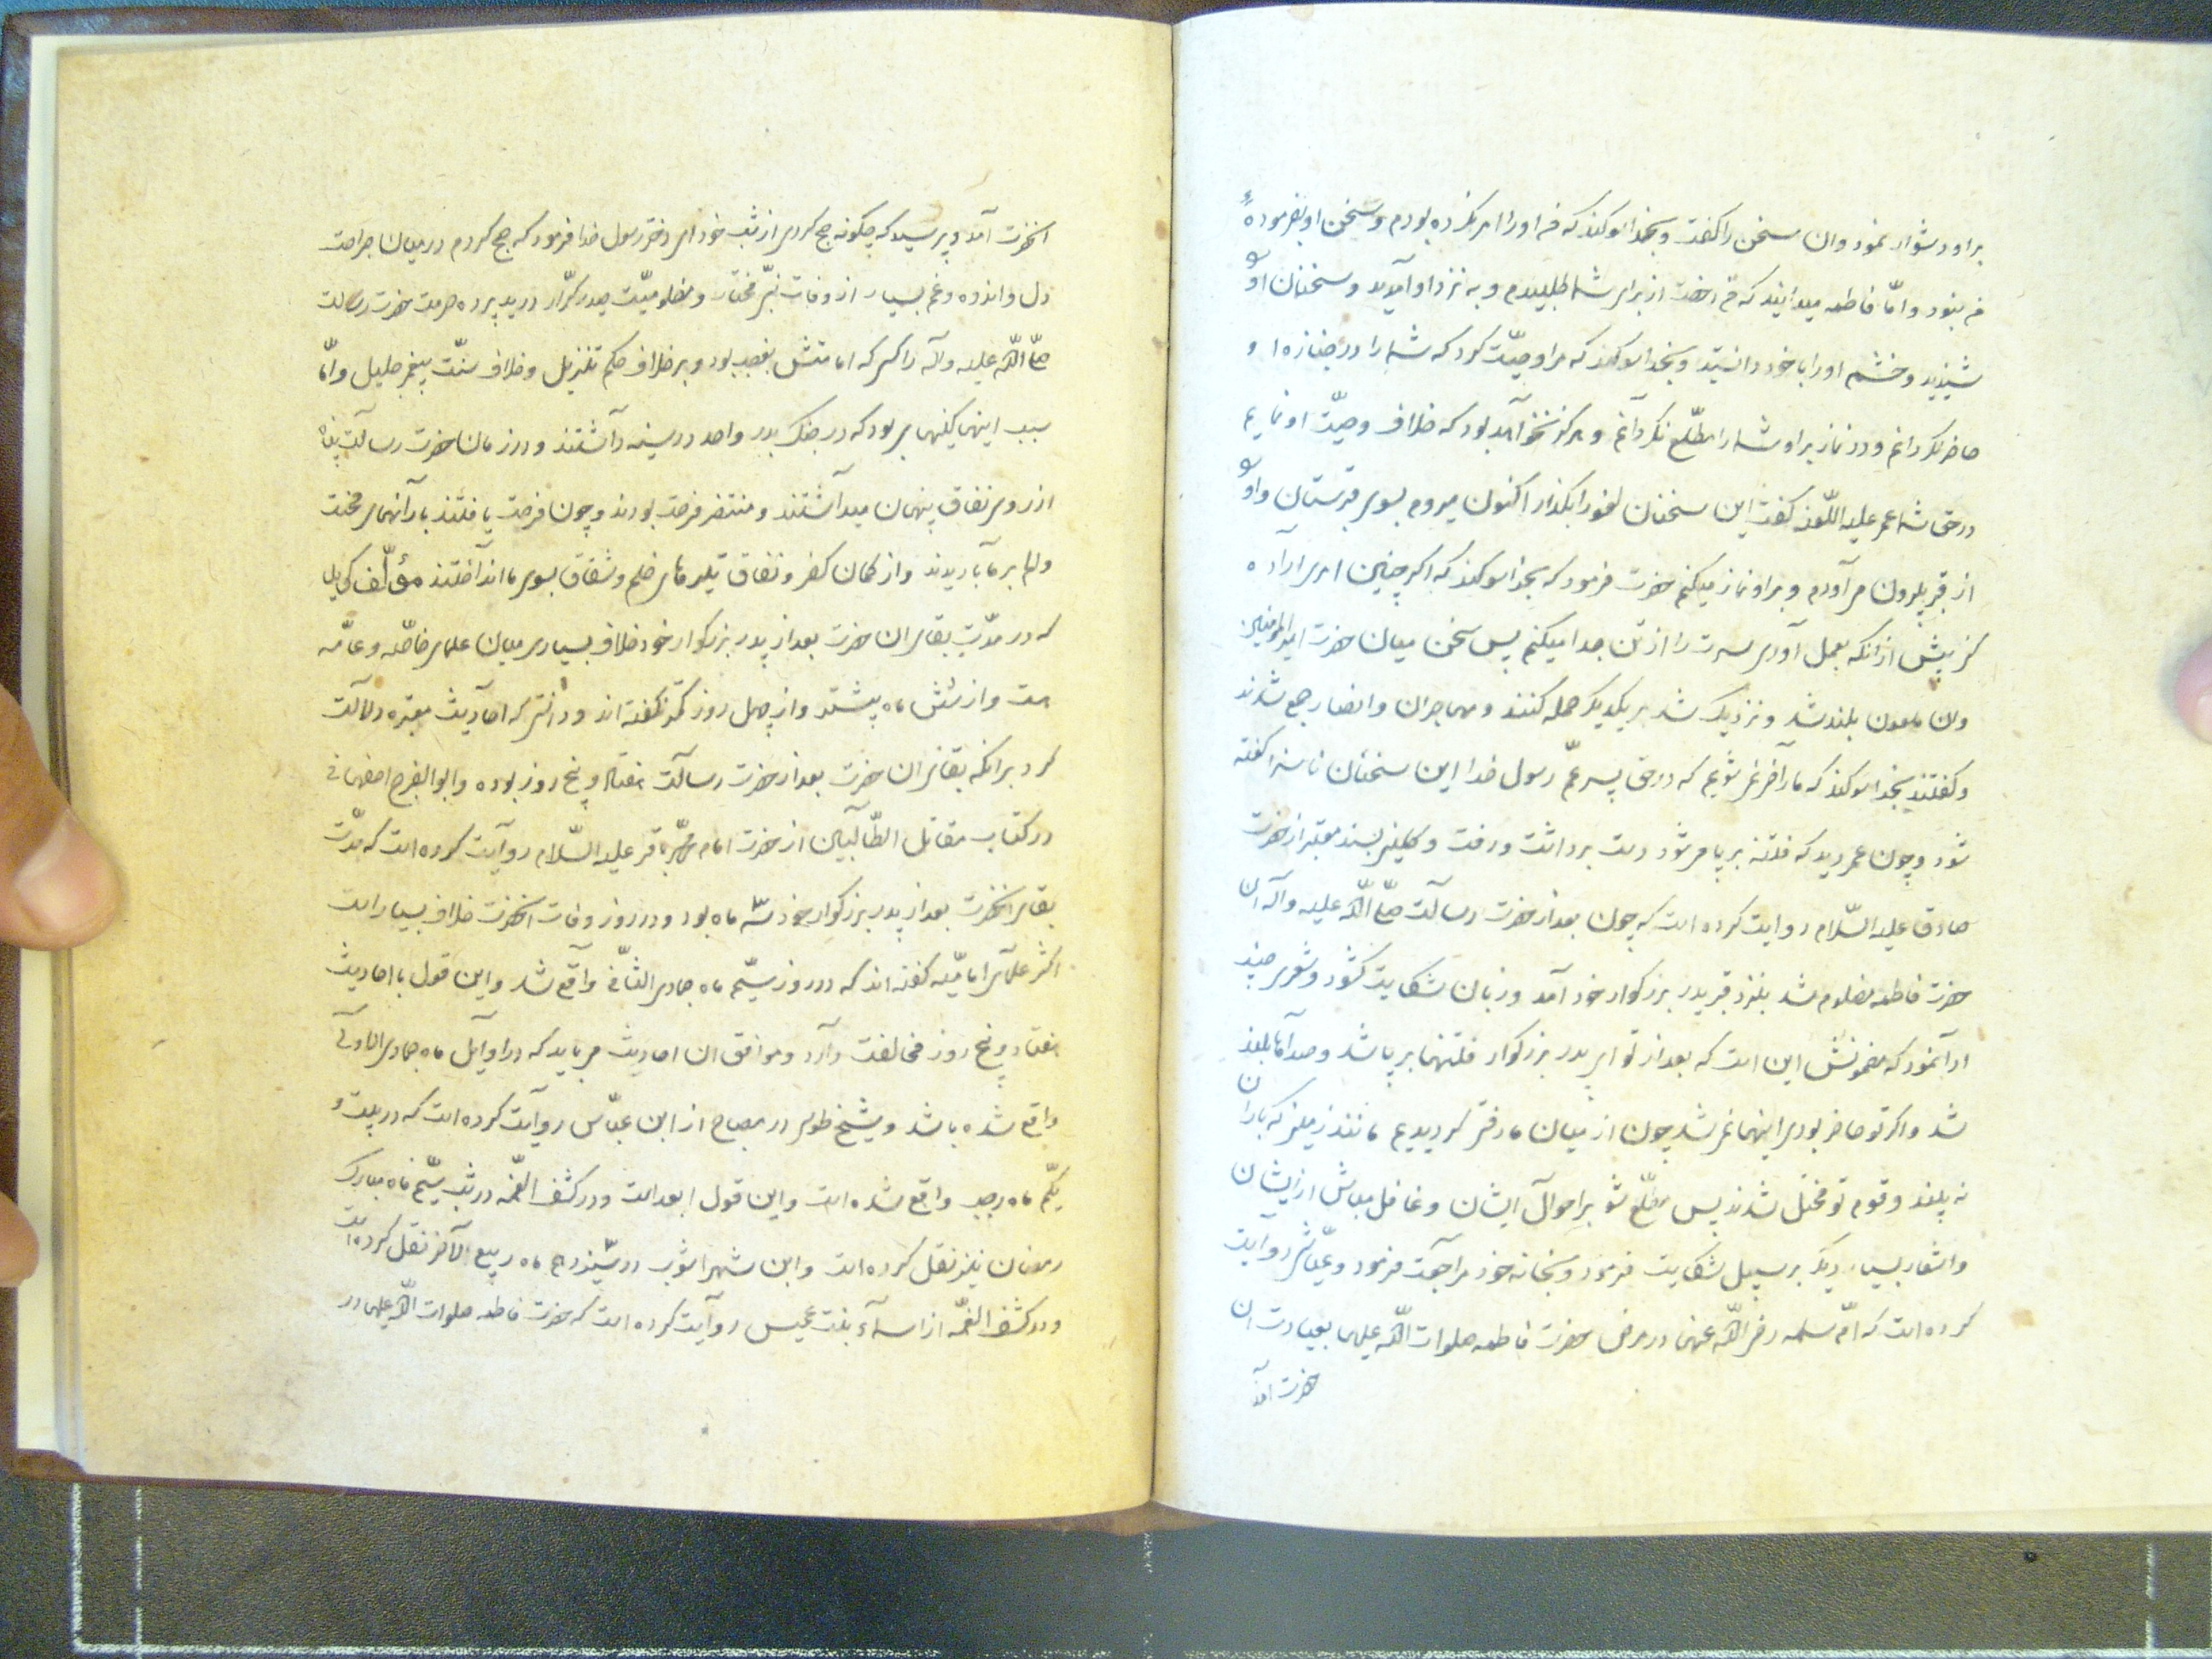 براو دشوار نمود وان سخن را کفت و بخدا سوکند که من او را امر نکرده بودم و سخن او بفرمودهٔ
من نبود و امّا فاطمه میدانید که من رخصت از برای شما طلبیدم و به نزد او آمدید و سخنان او
شنیدید و خشم او را با خود دانستید و بخدا سوکند که مرا وصیّت کرد که شما را در جنازه او
حاضر نکردانم و در نماز بر او شما را مطّلع نکردآنم و هرکز نخوآهد بود که خلاف وصیّت او نمایم
در حق شما عمر علیه اللّعنه کفت این سخنان لغو را بکذار اکنون میروم بسوی قبرستان و او را
از قبر بیرون می آورم و بر او نماز میکنم حضرت فرمود که بخدا سوکند که اکر چنین امری اراده
کنی پیش از انکه بعمل آوری سرت را از تن جدا میکنم پس سخن میان حضرت امیرالمؤمنین
وان ملعون بلند شد و نزدیک شد بر یکدیکر حمله کنند و مهاجران و انصار جمع شدند
و کفتند بخدا سوکند که ما رآضی نمی شویم که در حق پسر عمّ رسول خدا این سخنان ناسزا کفته
شود و چون عمر دید که فتنه بر پا می شود دست برداشت و رفت و کلینی بسند معتبر از حضرت
صادق علیه السّلام روایت کرده است که چون بعد از حضرت رسآلت صلّی اللّه علیه و آله ان
حضرت فاطمه مظلوم شد بنزد قبر پدر بزرکوار خود آمد و زبان شکایت کشود و شعری چند
ادآ نمود که مضمونش این است که بعد از تو ای پدر بزرکوار فتنها بر پا شد و صدآها بلند
شد و اکر تو حاضر بودی اینها نمی شد چون از میان ما رفتی کردیدیم مانند زمینی که باران
نه بیند و قوم تو مختل شدند پس مطّلع شو بر احوآل ایشان و غافل مباش از ایشان
و اشعار بسیار دیکر بر سبیل شکایت فرمود و بخانه خود مراجعت فرمود و عیّاشی روآیت
کرده است که امّ سلمه رضی اللّه عنها در مرض حضرت فاطمه صلوات اللّه علیها بعیادت ان
حضرت آمد
انحضرت آمد و پرسید که چکونه صبح کردی از شب خود ای دختر رسول خدا فرمود که صبح کردم در میان جراحت
دل و اندوه و غم بسیار از وفات نبیّ مختار و مظلومیّت حیدر کرّار درید پرده حرمت حضرت رسالت
صلّی اللّه علیه و آله را کسی که امامتش بغصب بود و بر خلاف حکم تنزیل و خلاف سنّت پیغمبر جلیل و امّا
سبب اینها کینهای بود که در جنک بدر و احد در سینه دآشتند و در زمان حضرت رسآلت پناه
از روی نفاق پنهان میدآشتند و منتظر فرصت بودند و چون فرصت یافتند بارآنهای محنت
و الم بر ما باریدند و از کمان کفر و نفاق تیرهای ظلم و شقاق بسوی ما اندآختند مؤلّف کوید
که در مدّت بقای ان حضرت بعد از پدر بزرکوار خود خلاف بسیاری میان علمای خاصّه و عامّه
است و از شش ماه بیشتر و از چهل روز کمتر نکفته اند و اکثر احآدیث معتبره دلالت
کرد بر انکه بقای ان حضرت بعد از حضرت رسآلت هفتاد و پنج روز بوده و ابوالفرج اصفهانی
در کتاب مقاتل الطّالبیّین از حضرت امام محمّد باقر علیه السّلام روآیت کرده است که مدّت
بقای انحضرت بعد از پدر بزرکوار خود سه ماه بود و در روز وفات انحضرت خلاف بسیار است
اکثر علمآی امامیّه کفته اند که در روز سیّم ماه جمادی الثّانی وآقع شد و این قول با احادیث
هفتاد و پنج روز مخالفت دآرد و موافق ان احادیث می باید که در اوآیل ماه جمادی الاولی
واقع شده باشد و شیخ طوسی در مصباح از ابن عبّاس روآیت کرده است که در بیست و
یکّم ماه رجب واقع شده است و این قول ابعد است و در کشف الغمّه در شب سیّم ماه مبارک
رمضان نیز نقل کرده است و ابن شهراشوب در سیزدهم ماه ربیع الآخر نقل کرده است
و در کشف الغمّه از اسمآء بنت عمیس روآیت کرده است که حضرت فاطمه صلوات اللّه علیها در